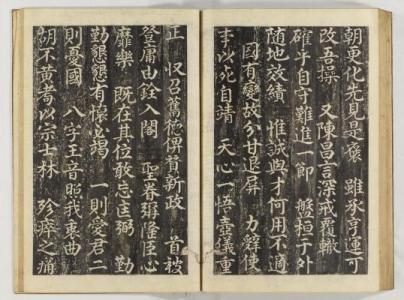 朝更化先見是褒 雖承亨運可
改吾操 又陳昌言深戒覆轍
確乎自守難進一節 盤桓于外
隨地效績 惟誠與才何用不適
國有變故分甘退屏 力辭使
事以死自靖 天心一悟壼儀重
正 収召篤德俾贊新政 首被
登庸由銓入閤 聖眷彌隆臣心
靡樂 既在其位敢忘匡弼 勤
勤懇懇有懷必竭 一則愛君二
則憂國 八字王音昭我衷曲
胡不黃耉以宗士林 殄瘁之痛